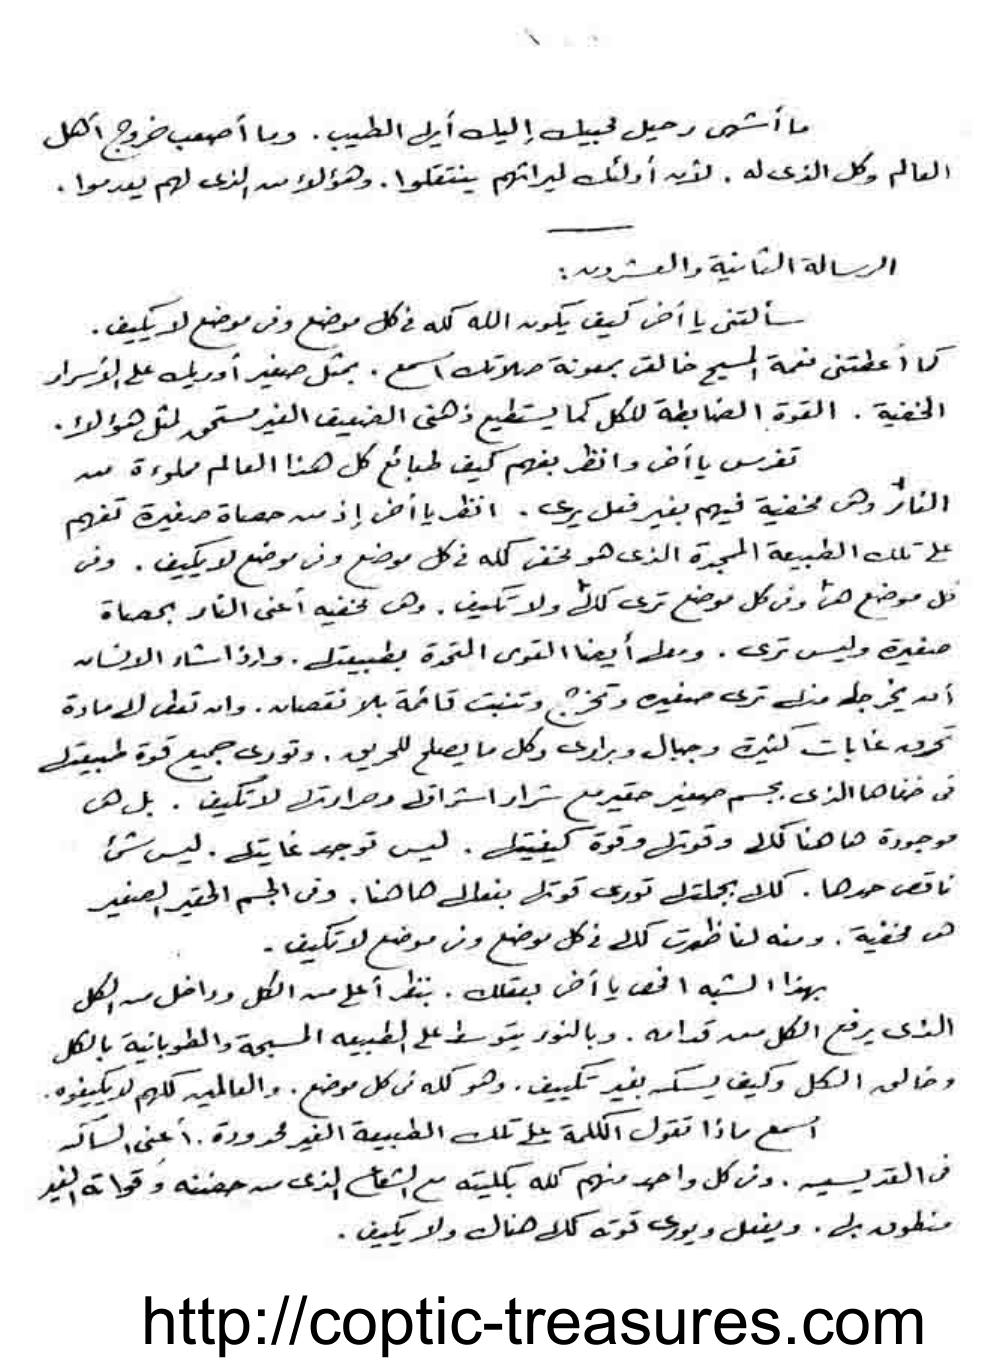 ما أشهى رحيل محبيك إليك أيها الطيب . وما أصعب خروج أهل
العالم وكل الذى له . لأن أولئك لميراثهم ينتقلوا . وهؤلاء من الذى لهم يعدموا .
الرسالة الثانية والعشرون :
سألتنى يا أخى كيف يكون الله كله فى كل موضع وفى موضع لا يكيف .
كما أعطتنى نعمة المسيح خالقى بمعونة صلاتك اسمع . بمثل صغير أوريك على الأسرار
الخفية . القوة الضابطة للكل كما يستطيع ذهنى الضعيف الغير مستحق لمثل هؤلاء .
تفرس يا أخى وانظر بفهم كيف طبائع كل هذا العالم مملوءة من
النار وهى مخفية فيهم بغير فعل يرى . انظر يا أخى إذ من حصاة صغيرة تفهم
على تلك الطبيعة الممجدة الذى هو مخفى كله فى كل موضع وفى موضع لا يكيف . وفى
كل موضع هى وفى كل موضع ترى كلها ولا تكيف . وهى مخفيه أعنى النار بحصاة
صغيرة وليس ترى . ومعها أيضا القوى المتحدة بطبيعتها . وإذا شاء الانسان
أن يخرجها منها ترى صغيره وتخرج وتثبت قائمة بلا نقصان . وان تعطى لها مادة
تحرق غابات كثيرة وجبال وبرارى وكل ما يصلح للحريق . وتورى جميع قوة طبيعتها
فى خفاها الذى بجسم صغير حقير مع شرار اشراقها وحرارتها لا تكيف . بل هى
موجودة هاهنا كلها وقوتها وقوة كيفيتها . ليس توجد غايتها . ليس شئ
ناقص حدها . كلها بجملتها تورى قوتها بفعالها هاهنا . وفى الجسم الحقير الصغير
هى مخفية . ومنه لنا ظهرت كلها فى كل موضع وفى موضع لا تكيف .
بهذا الشبه افحص يا أخى بعقلك . بنظر أعلى من الكل وداخل من الكل
الذى يرفع الكل من قدامه . وبالنور يتوسط على الطبيعه المسبحة والطوبانية بالكل
وخالق الكل وكيف يسكن بغير تكييف . وهو كله فى كل موضع . والعالمين كلهم لا يكيفوه .
أسمع ماذا تقول الكلمة على تلك الطبيعة الغير محدودة . أعنى الساكن
فى القديسين . وفى كل واحد منهم كله بكليته مع الشعاع الذى من حضنه وقواته الغير
منطوق بها . ويفعل ويورى قوته كلها هناك ولا يكيف .
http://coptic-treasures.com